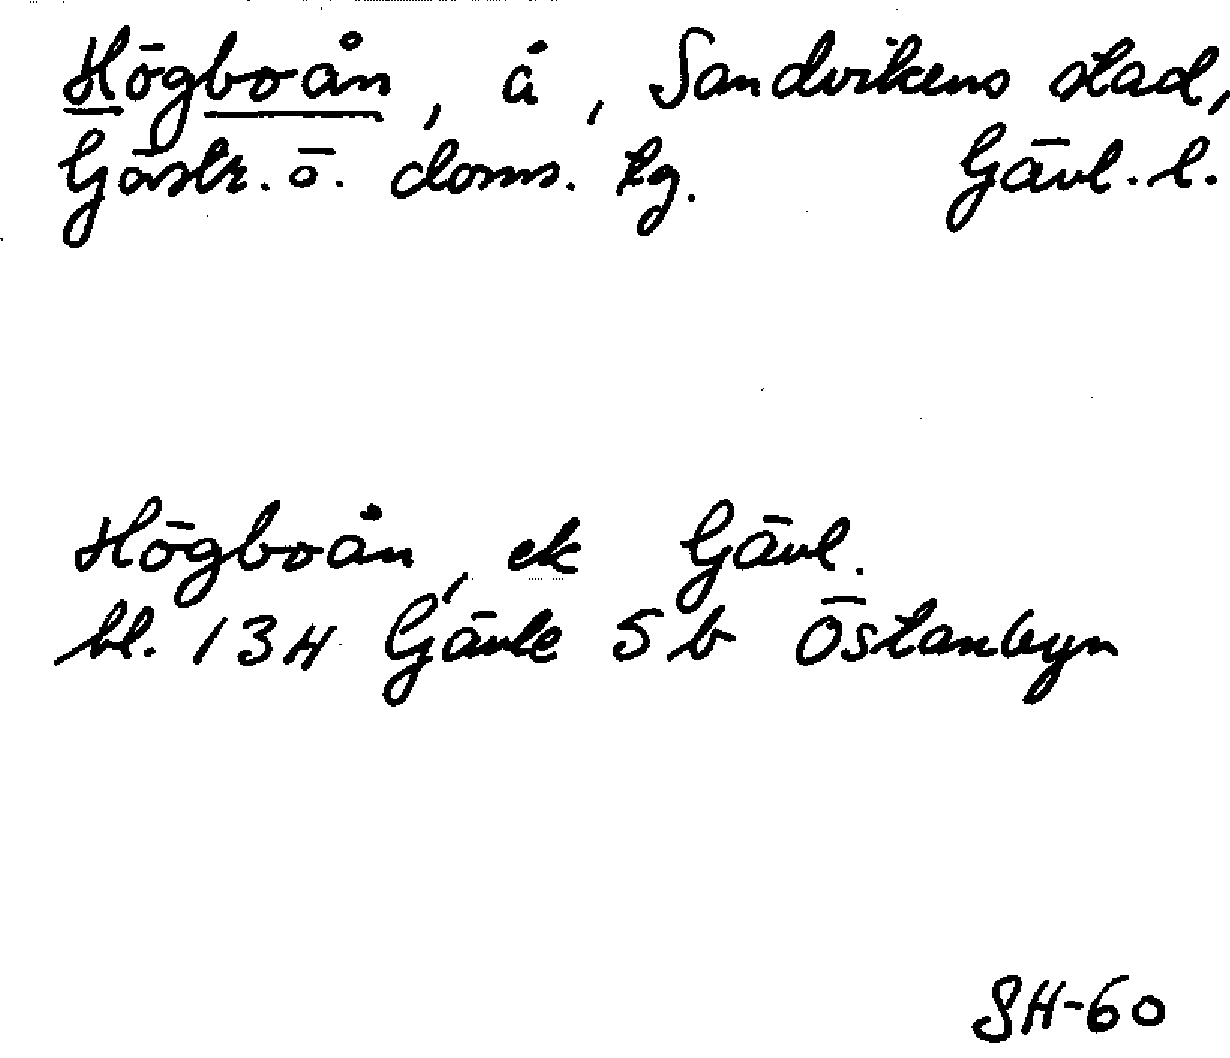 Högboån, å, Sandvikens stad,
Gästr. ö. doms. hg. Gävl. l.
Högboån, ek Gävl.
bl. 13H Gävle 5b Östanbyn
SH-60